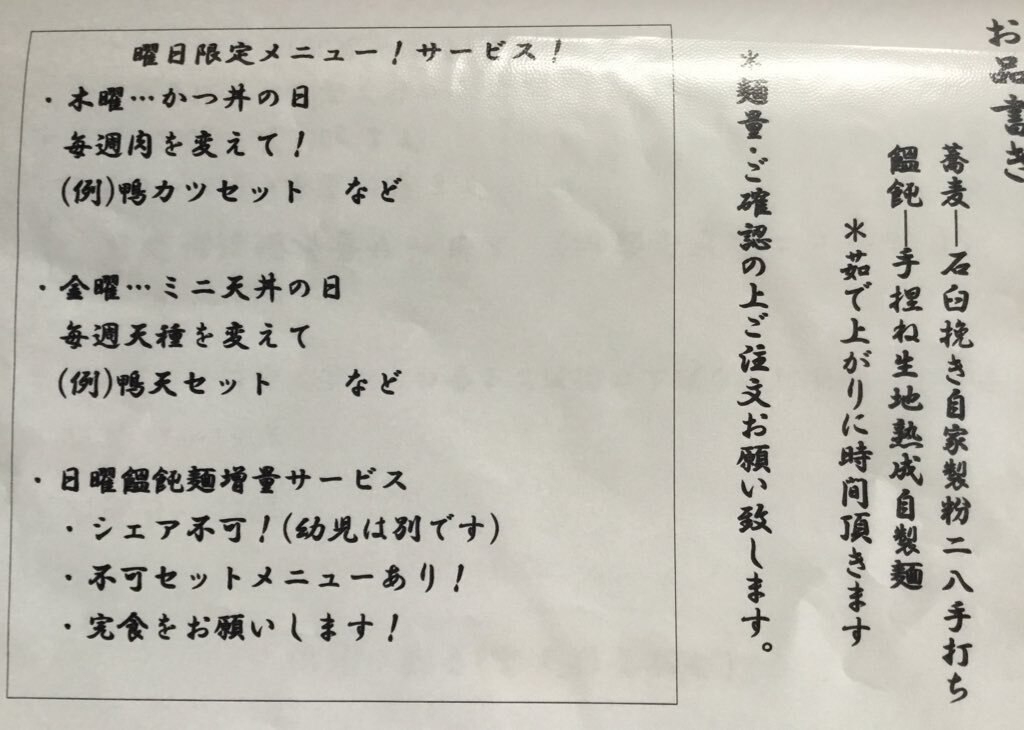 お品書き
蕎麦―石臼挽き自家製粉二八手打ち
饂飩―手捏ね生地熟成自製麺
＊茹で上がりに時間頂きます
＊麺量・ご確認の上ご注文お願い致します。
曜日限定メニュー！サービス！
・木曜…かつ丼の日
毎週肉を変えて！
(例)鴨カツセット　など
・金曜…ミニ天丼の日
毎週天種を変えて
(例)鴨天セット　　など
・日曜饂飩麺増量サービス
・シェア不可！(幼児は別です)
・不可セットメニューあり！
・完食をお願いします！